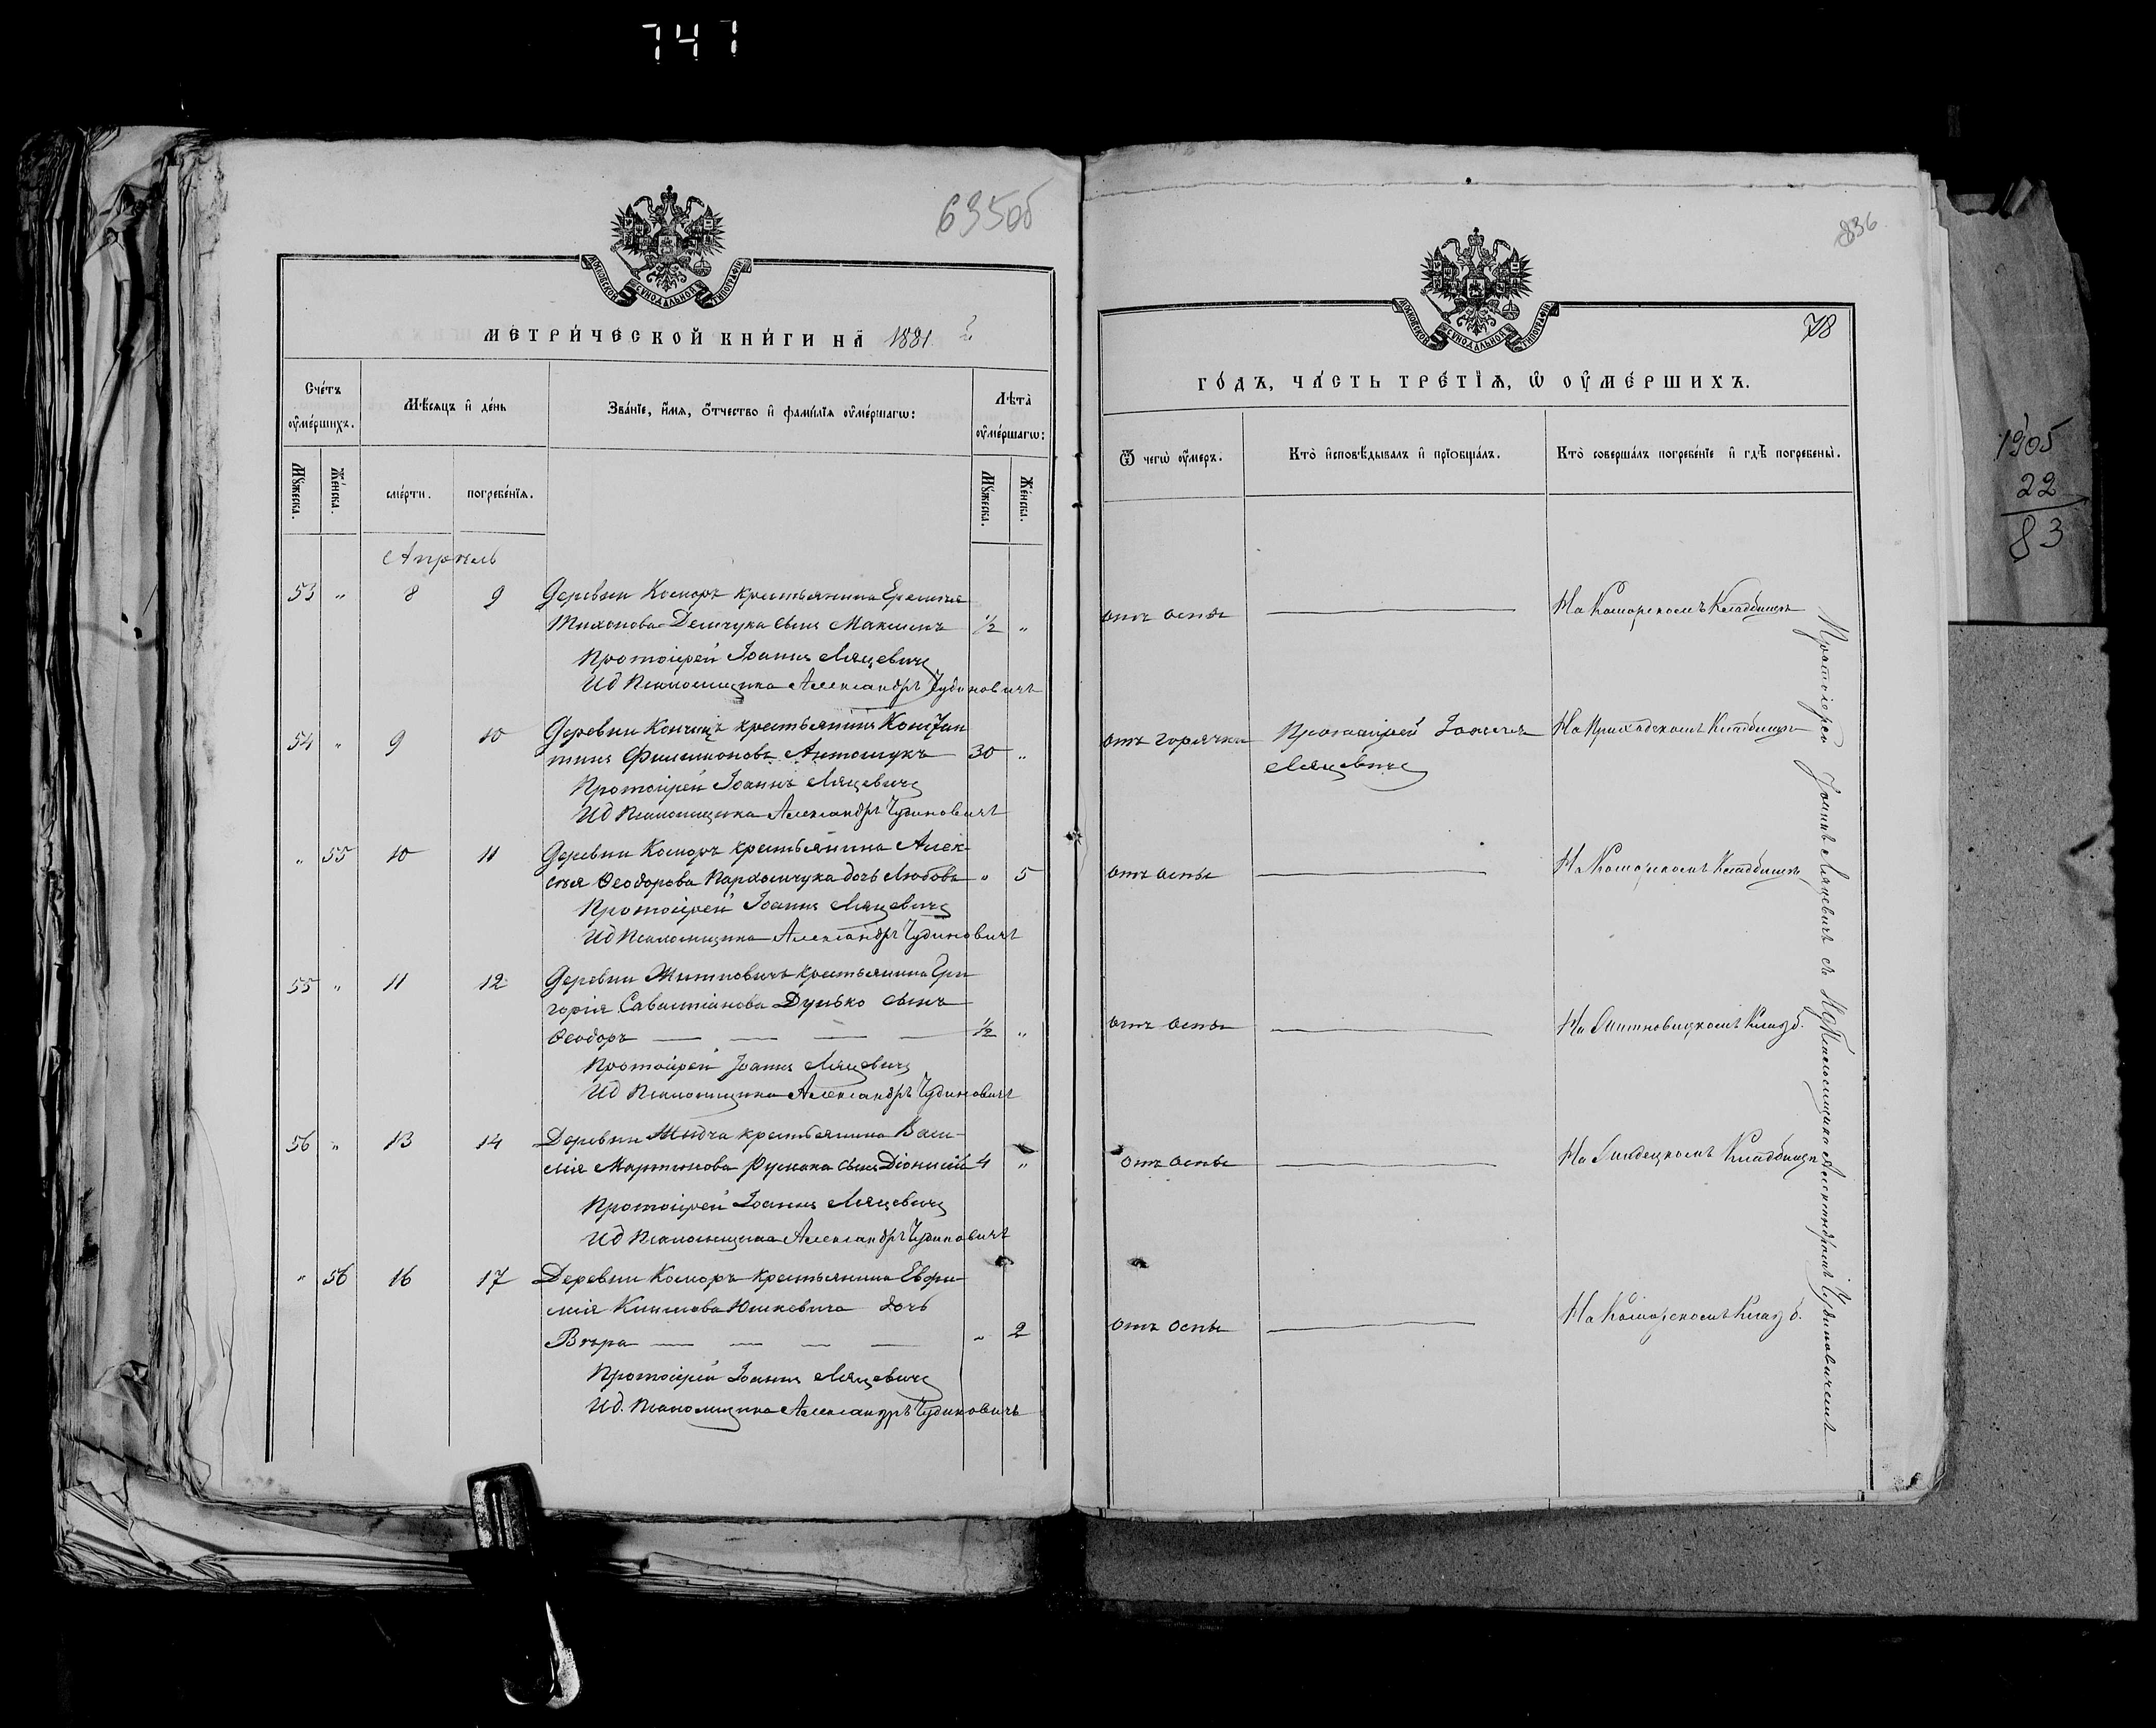 747
635об
МОСКОВСКОЙ СѴНОДАЛЬНОЙ ТИПОГРАФІИ
МЕТРИ́ЧЕСКОЙ КНИ́ГИ НА 1881
Сче́тъ оу҆ме́ршихъ.
Мѣ́сяцъ и҆ де́нь
Зва́нїе, и҆́мя, ѻ҆́тчество и҆ фами́лїя оу҆ме́ршагѡ:
Лѣта̀ оу҆ме́ршагѡ:
Мꙋ́жеска.
Же́нска.
сме́рти.
погребе́нїя.
Мꙋ́жеска.
Же́нска.
Апрѣль
53 " 8 9 Деревни Коморъ крестьянина Еремія
Тихонова Демчука сынъ Максимъ ½ "
Протоіерей Іоаннъ Ляцевичъ
И д Псаломщика Александръ Чудиновичъ
54 " 9 10 Деревни Кончицъ крестьянинъ Констан
тинъ Филимоновъ Антонюкъ 30 "
Протоіерей Іоаннъ Ляцевичъ
И д Псаломщика Александръ Чудиновичъ
" 55 10 11 Деревни Коморъ крестьянина Алек-
сѣя Ѳеодорова Пархомчука дочь Любовь " 5
Протоіерей Іоаннъ Ляцевичъ
И д Псаломщика Александръ Чудиновичъ
55 " 11 12 Деревни крестьянина Гри
горія Савастіанова Дунько сынъ
Ѳеодоръ ½ "
Протоіерей Іоаннъ Ляцевичъ
И д Псаломщика Александръ Чудиновичъ
56 " 13 14 Деревни крестьянина Васи-
лія Мартинова Русака сынъ Діонисій 4 "
Протоіерей Іоаннъ Ляцевичъ
И д Псаломщика Александръ Чудиновичъ
" 56 16 17 Деревни Коморъ крестьянина Евфи-
мія Климова Юшкевича дочь
Вѣра " 2
Протоіерей Іоаннъ Ляцевичъ
И д. Псаломщика Александръ Чудиновичъ
836
МОСКОВСКОЙ СѴНОДАЛЬНОЙ ТИПОГРАФІИ
78
ГО́ДЪ, ЧА́СТЬ ТРЕ́ТЇѦ, Ѡ҆ ОУ҆МЕ́РШИХЪ.
Ѿ чегѡ̀ оу҆́меръ.
Кто̀ и҆сповѣ́дывалъ и҆ прїѡбща́лъ.
Кто̀ соверша́лъ погребе́нїе и҆ гдѣ̀ погребены̀.
отъ оспы На Коморскомъ Кладбищѣ
отъ горячки Протоіерей Іоаннъ На Приходскомъ Кладбищѣ
Ляцевичъ
отъ оспы На Коморскомъ Кладбищѣ
отъ оспы На Кладб.
отъ оспы На Кладбищѣ
отъ оспы На Коморскомъ Кладб.
Протоіерей Іоаннъ Ляцевичъ съ И Д Псаломщика Александромъ Чудиновичемъ
1905
22
83